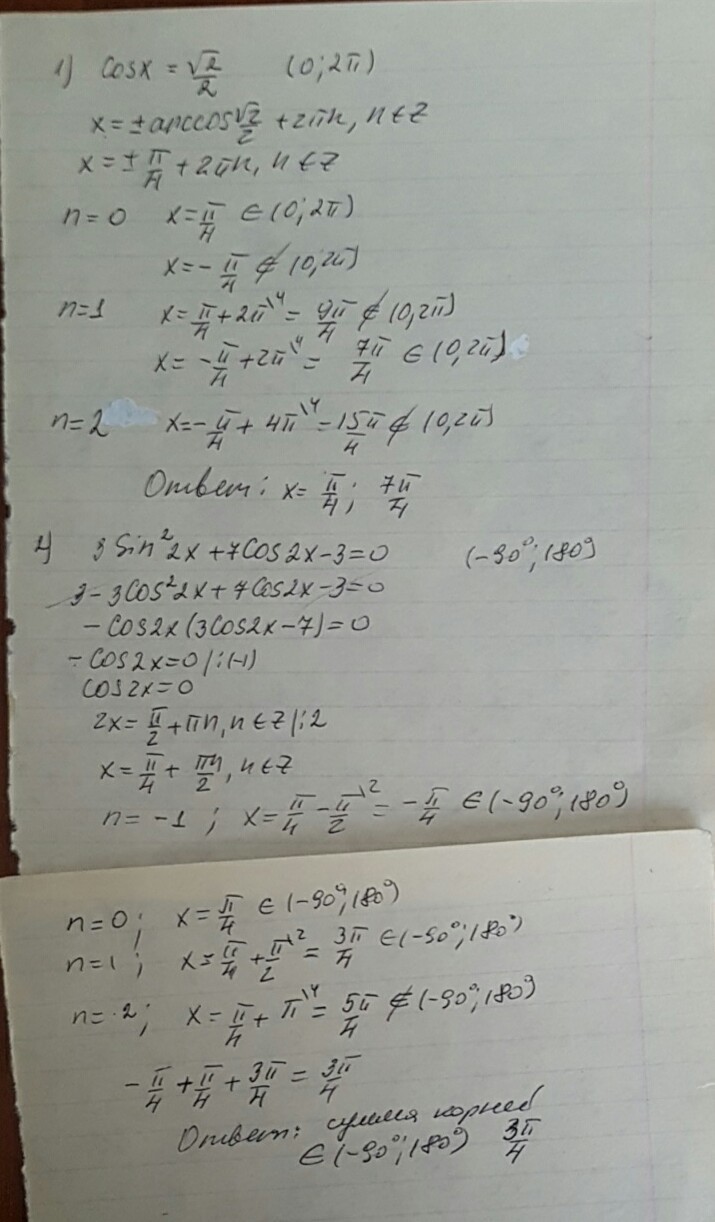 1) cosx = √2/2 (0; 2π)
x = ± arccos √2/2 + 2πn, n ∈ Z
x = ± π/4 + 2πn, n ∈ Z
n = 0 x = π/4 ∈ (0; 2π)
x = - π/4 ∉ (0; 2π)
n=1 x = π/4 + 2π\4 = 9π/4 ∉ (0, 2π)
x = - π/4 + 2π\4 = 7π/4 ∈ (0, 2π)
n=2 x = - π/4 + 4π\4 = 15π/4 ∉ (0, 2π)
Ответ: x = π/4; 7π/4
4) 3 sin²2x + 7cos2x - 3 = 0 (-90°; 180°)
3 - 3cos²2x + 7cos2x - 3 = 0
- cos2x (3cos2x - 7) = 0
- cos2x = 0 |:(-1)
cos2x = 0
2x = π/2 + πn, n ∈ Z |:2
x = π/4 + πn/2, n ∈ Z
n = -1; x = π/4 - π\2/2 = - π/4 ∈ (-90°; 180°)
n = 0; x = π/4 ∈ (-90°; 180°)
n = 1; x = π/4 + π\2/2 = 3π/4 ∈ (-90°; 180°)
n = 2; x = π/4 + π\4 = 5π/4 ∉ (-90°; 180°)
- π/4 + π/4 + 3π/4 = 3π/4
Ответ: сумма корней
∈ (-90°; 180°) 3π/4